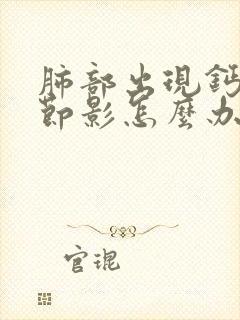 肺部出現鈣
節影怎麼办
官琨